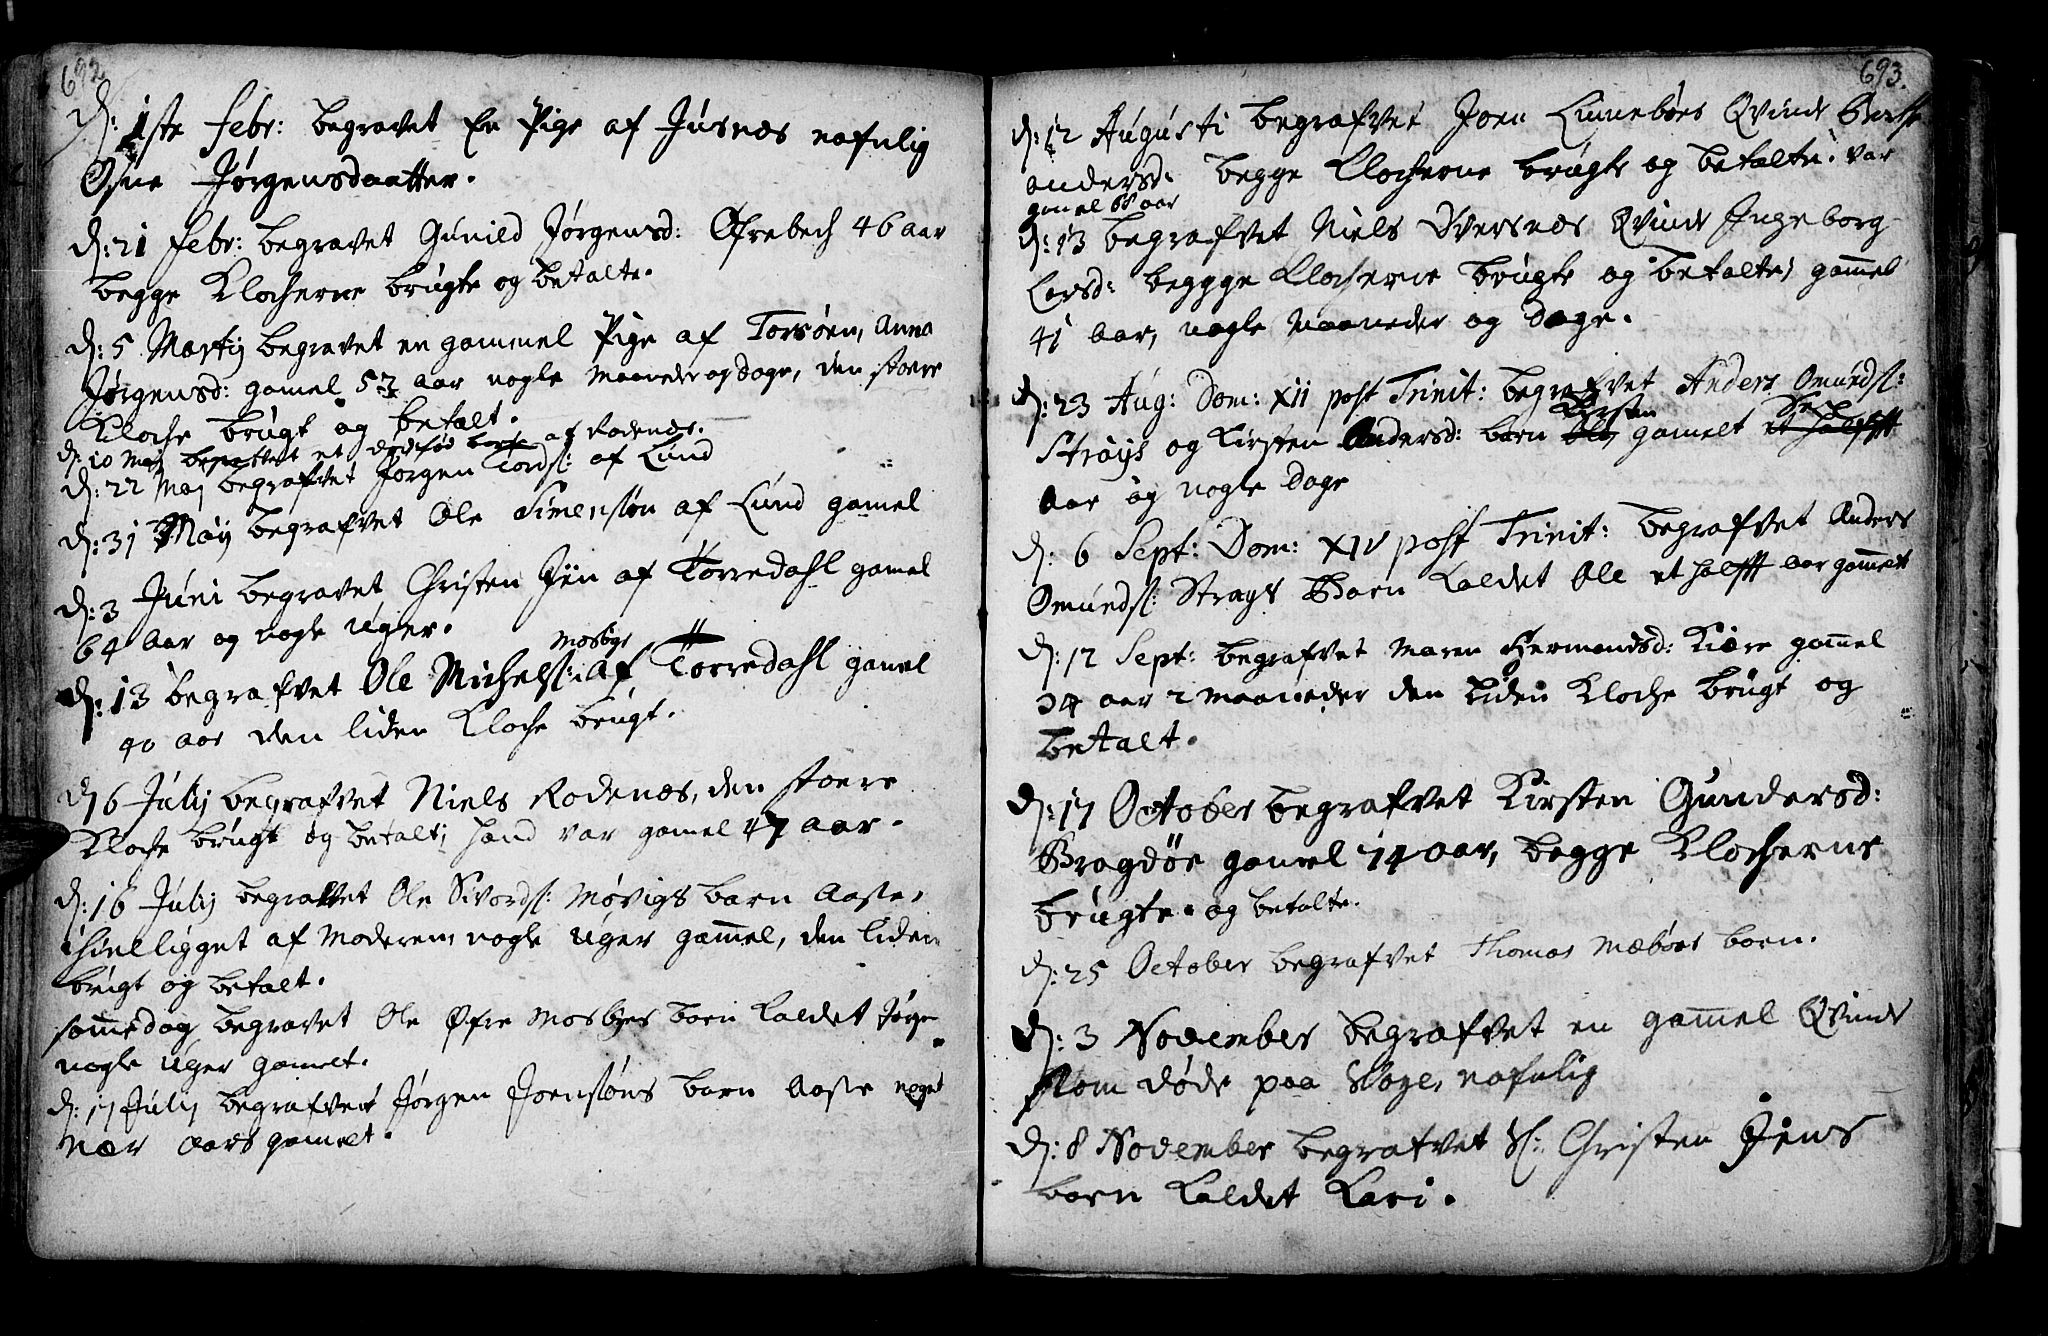 692
d: 1ste Febr: begravet En Pige af Jusnæs nafnlig
Osne Jørgensdaatter.
d: 21 Febr: begravet Gunild Jørgensd: Øfrebech 46 aar
begge Klocherne brugte og betalte.
d: 5 Martij begravet en gammel Pige af Torsøen, Anna
Jørgensd: gamel 53 aar nogle Maaneder og dage, den stoere
Kloche brugt og betalt.
d: 10 Maj begravet et dødfød barn af Rodenæs.
d: 22 Maj begrafvet Jørgen Tords: af Lund
d: 31 Maij begrafvet Ole Simensøn af Lund gamel
d: 3 Juni begravet Christen Jin af Torredahl gamel
64 aar og nogle uger.
Mosbye
d: 13 begrafvet Ole Michels: af Torredahl gamel
40 aar den liden Kloche brugt.
d: 6 Julij begrafvet Niels Rodenæs, den stoere
Kloche brugt og betalt; hand var gamel 47 aar.
d: 16 Julij begravet Ole Sivords: Møvigs barn Aaste,
ihielligget af Moderen, nogle uger gammel, den liden
brugt og betalt.
samme dag begravet Ole Øfre Mosbyes barn kaldet Jørgen
nogle uger gamelt.
d: 17 Julij begrafvet Jørgen Joensøns barn Aaste noget
nær aars gamelt.
693.
d: 12 Augusti begrafvet Joen Linnebøes Qvinde Berthe
Andersd: begge Klocherne brugte og betalte. var
gamel 68 aar
d: 13 begrafvet Niels Dversnæs Qvinde Ingeborg
Larsd: beggge Klocherne brugte og betalte; gammel
41 aar, nogle Maaneder og dage.
d: 23 Aug: Dom: XII post Trinit: begrafvet Anders Omunds:
Strays og Kirsten Andersd: barn Ole Kirsten gamelt et halft Sex
aar og nogle dage
d: 6 Sept: Dom: XIV post Trinit: begrafvet Anders
Omunds: Strays Barn kaldet Ole et halfft aar gammelt
d: 12 Sept: begrafvet Maren Hermandsd: Kiære gammel
34 aar 2 Maaneder den liden Kloche brugt og
betalt.
d: 17 October begrafvet Kirsten Gundersd:
Bragdøe gamel 74 aar, begge Klocherne
brugte. og betalte.
d: 25 October begrafvet Thomas Mæbøes barn.
d: 3 November begrafvet en gammel Qvinde
som døde paa Voye, nafnlig
d: 8 November begrafvet Sl: Christen Jins
barn kaldet Kari.